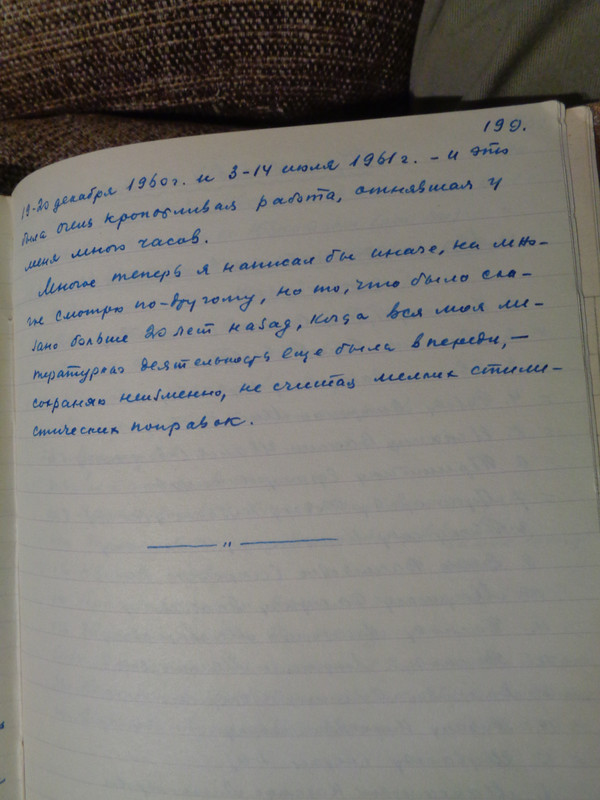 199.
19-20 декабря 1960 г. и 3-14 июля 1961 г. – и это
была очень кропотливая работа, отнявшая у
меня много часов.
Многое теперь я написал бы иначе, на мно-
гое смотрю по-другому, но то, что было ска-
зано больше 20 лет назад, когда вся моя ли-
тературная деятельность еще была впереди, –
сохраняю неизменно, не считая мелких стили-
стических поправок.
— „ —